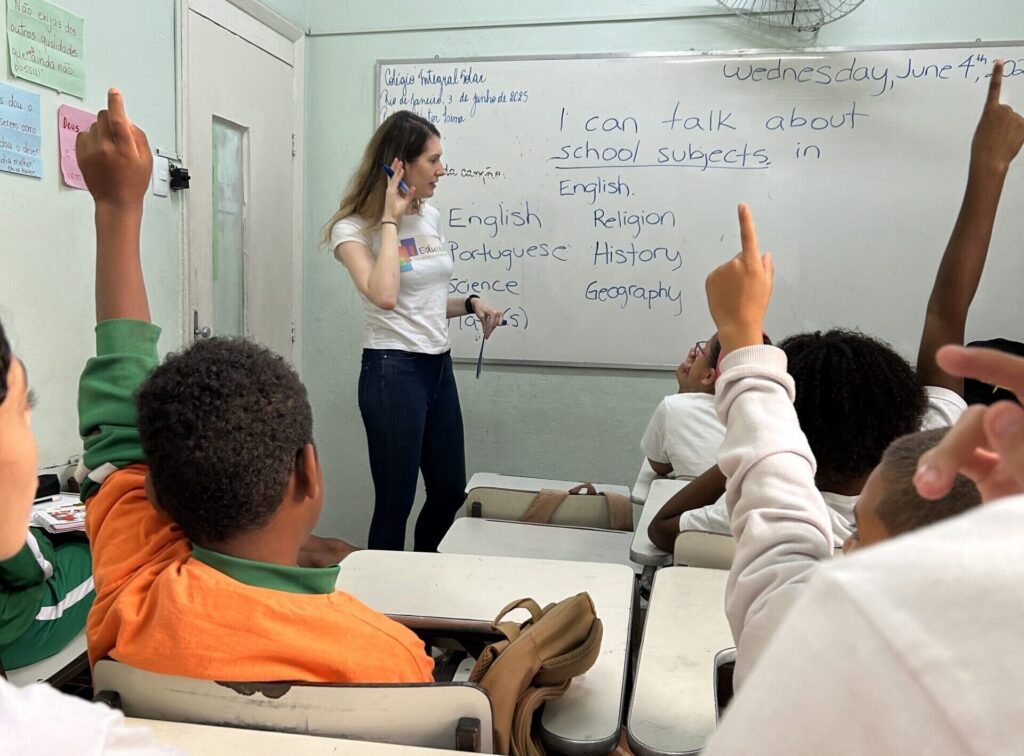 Não exijas dos
outros qualidades
que ainda não
possui!
dou o
serem como
dou o dever
dia melhor"
Deus
Colégio Integral Solar
Rio de Janeiro, 3 de junho de 2025
Wednesday, June 4th, 202
I can talk about
school subjects in
English.
English Religion
Portuguese History
Science Geography
Edu